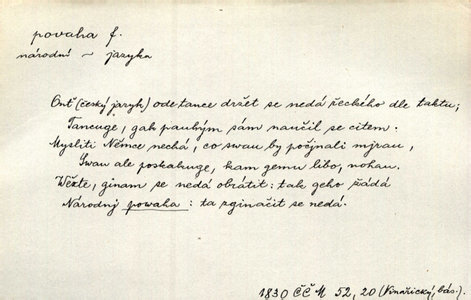 povaha f.
národní ~ jazyka
Onť (český jazyk) od etance držet se nedá řeckého dle taktu;
Tancuge, gak pauhým sám naučil se citem.
Mysliti Němce nechá, co swau by počjnali mjrau,
Swau ale poskakuge, kam gemu libo, nohau.
Wězte, ginam se nedá obrátit: tak geho žádá
Národnj powaha: ta zginačit se nedá.
1830 ČČM 52, 20 (Vinařický, bás.).